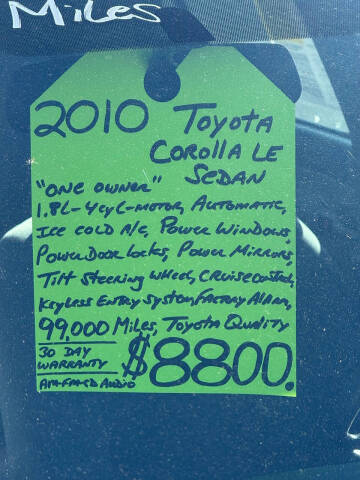 Miles
2010 Toyota
Corolla LE
Sedan
"One Owner"
1.8L-4cyl-motor, Automatic,
Ice cold A/c, Power Windows,
Power Door Locks, Power Mirrors,
Tilt Steering Wheel, Cruise Control,
Keyless Entry System, Factory Alarm,
99,000 Miles, Toyota Quality
30 Day
Warranty
AM-FM-CD Audio
$8800.